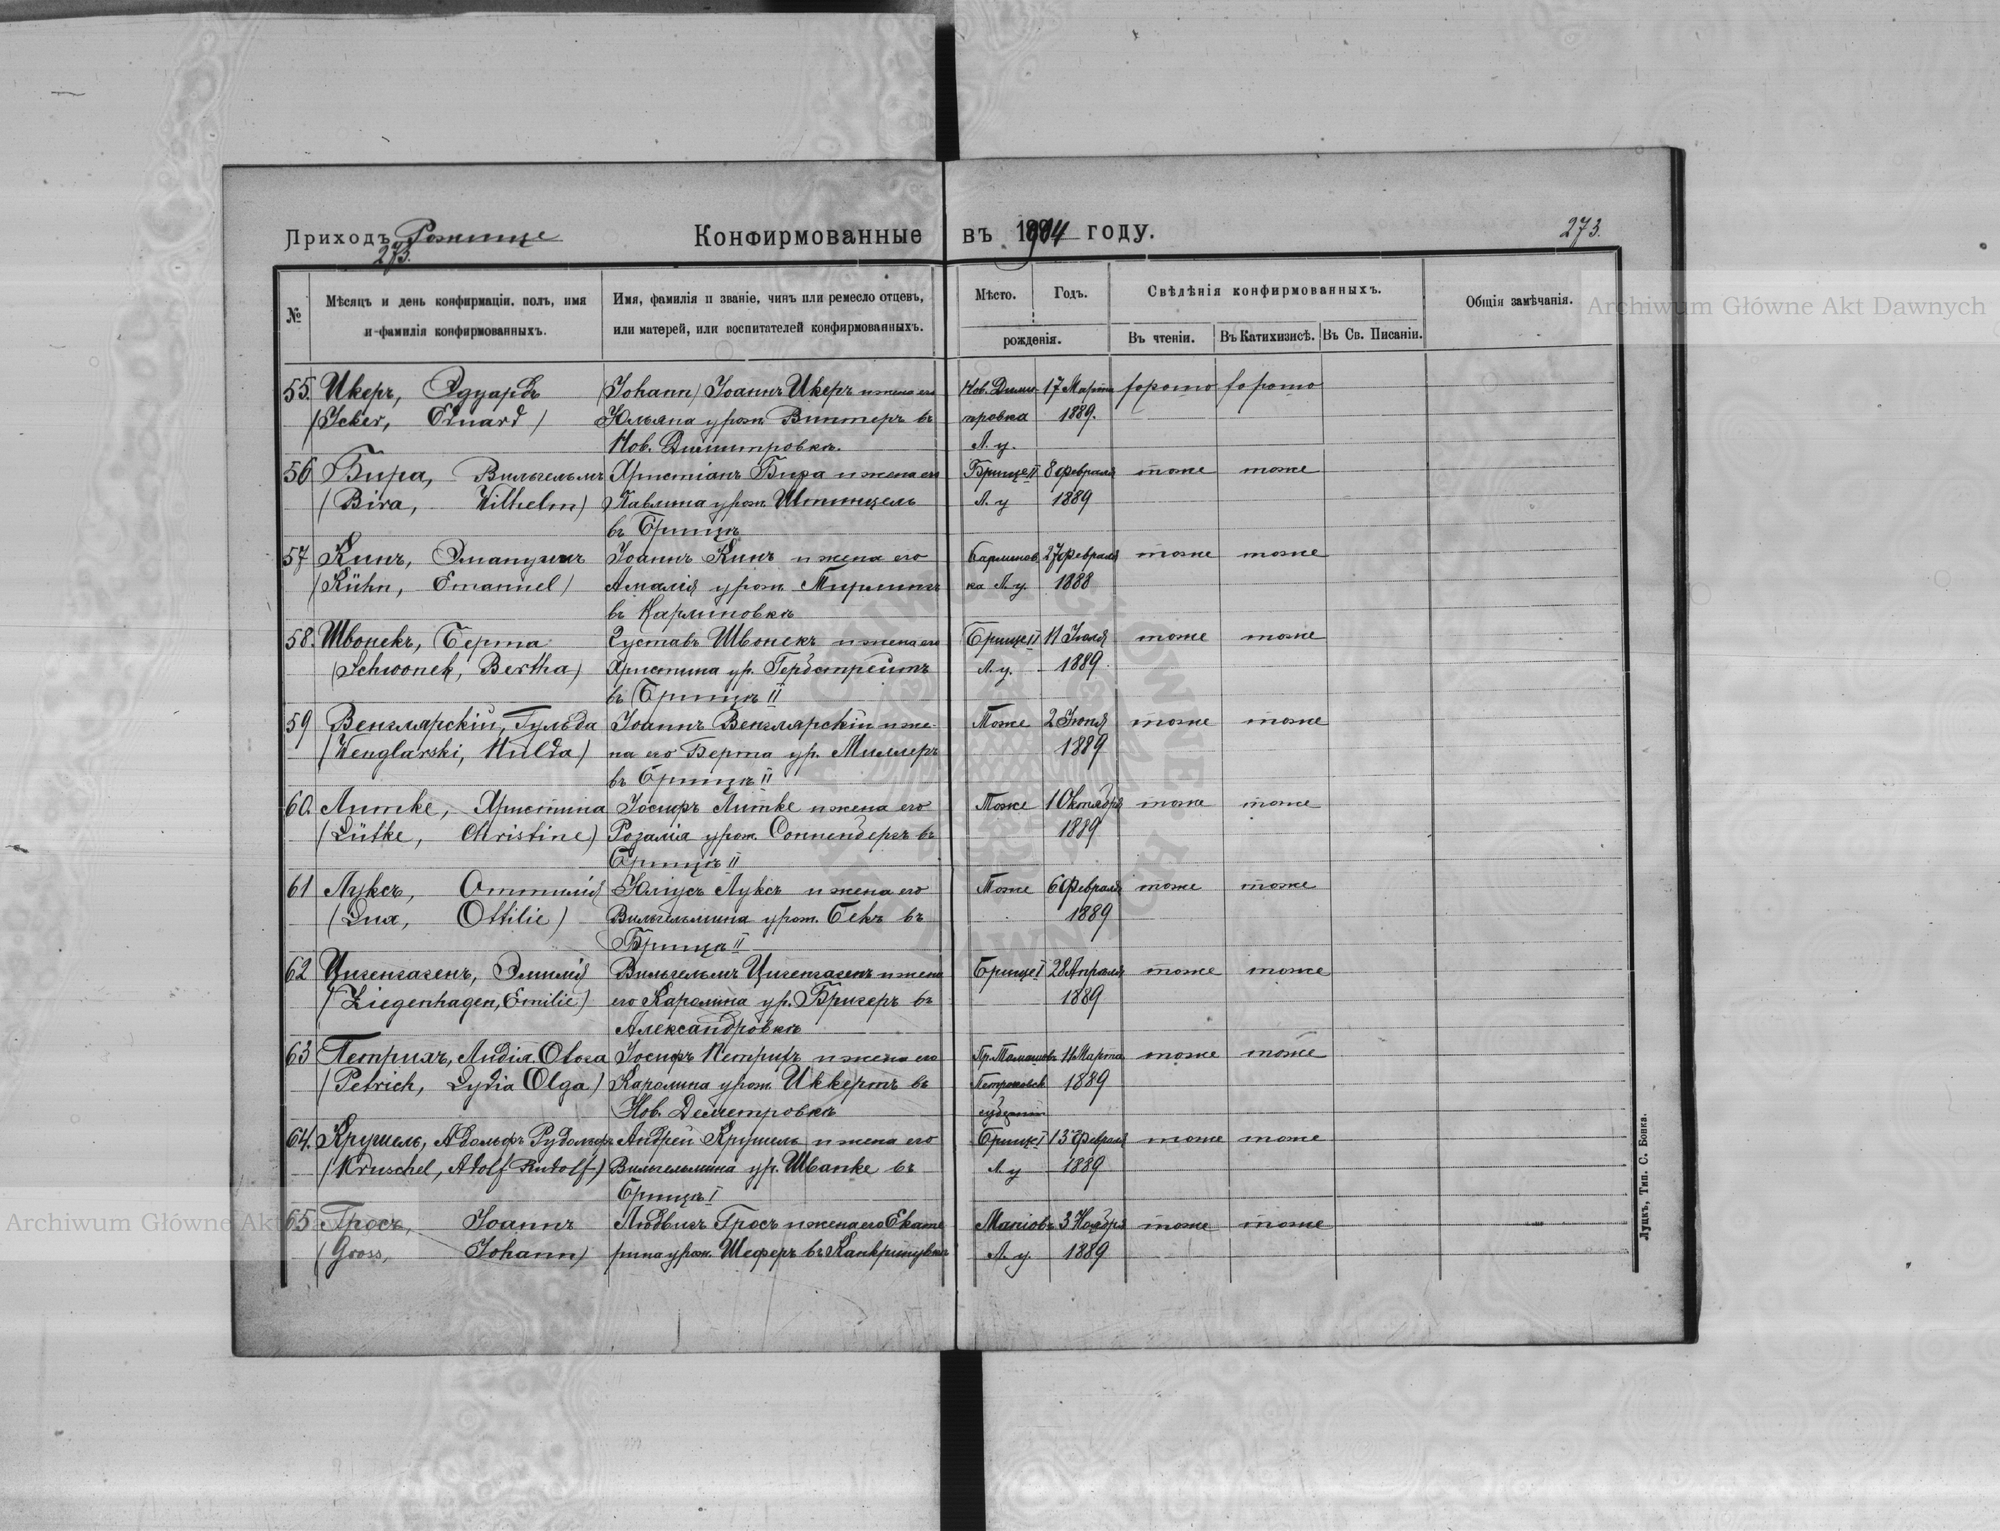 Приходъ Рожище Конфирмованные въ 1904 году. 273.
273.
№ Мѣсяцъ и день конфирмаціи, полъ, имя и фамилія конфирмованныхъ. Имя, фамилія и званіе, чинъ или ремесло отцевъ, или матерей, или воспитателей конфирмованныхъ. Мѣсто. Годъ. рожденія. Свѣдѣнія конфирмованныхъ. Въ чтеніи. Въ Катихизисѣ. Въ Св. Писаніи. Общія замѣчанія.
Archiwum Główne Akt Dawnych
55. Икеръ, Эдуардъ (Johann) Іоаннъ Икеръ и жена его Нов. Дими- 17 Марта хорошо хорошо
(Icker, Eduard) Юльяна урож. Винтеръ въ тровка 1889.
Нов. Димитровкѣ. Л. у.
56 Бира, Вильгельмъ Христіанъ Бира и жена его БрищеII 8 февраля тоже тоже
(Bira, Wilhelm) Павлина урож. Штинцель Л. у 1889
въ Брищѣ
57 Кинъ, Эмануилъ Іоаннъ Кинъ и жена его Карлинов 27 февраля тоже тоже
(Kühn, Emanuel) Амалія урож. въ ка Л. у. 1888
въ Карлиновкѣ
58. Швонекъ, Берта Густавъ Швонекъ и жена его Брище II 11 Іюля тоже тоже
(Schwonek, Bertha) Христина ур. Гербстрейтъ Л. у. 1889.
въ Брищѣ II
59 Венглярскій, Гульда Іоаннъ Венглярскій и же- Тоже 2 Іюня тоже тоже
(Wenglarski, Hulda) на его Берта ур. Миллеръ 1889
въ Брищѣ II
60. Литке, Христина Іосифъ Литке и жена его Тоже 1 Октября тоже тоже
(Lütke, Christine) Розалія урож. Сонненбергъ въ 1889
Брищѣ II
61 Луксъ, Оттилія Юліусъ Луксъ и жена его Тоже 6 Февраля тоже тоже
(Lux, Ottilie) Вильгельмина урож. Бекъ въ 1889
Брищѣ II
62 Цигенгагенъ, Эмилія Вильгельмъ Цигенгагенъ и жена Брище I 28 Апрѣля тоже тоже
(Ziegenhagen, Emilie) его Каролина ур. Бригеръ въ 1889
Александровкѣ
63 Петрихъ, Лидія Ольга Іосифъ Петрихъ и жена его Пр. Томашовъ 11 Марта тоже тоже
(Petrich, Lydia Olga) Каролина урож. Иккертъ въ Петроковск 1889
Нов. Деметровкѣ губерніи
64. Крушель, Адольфъ Рудольфъ Андрей Крушель и жена его Брищѣ I 13 Февраля тоже тоже
(Kruschel, Adolf Rudolf) Вильгельмина ур. Шванке въ Л. у 1889
Брищѣ I
65 Гросъ, Іоаннъ Людвигъ Гросъ и жена его Екате Маніовъ 3 Ноября тоже тоже
(Gross, Johann) рина урож. Шеферъ въ Л. у. 1889
Archiwum Główne Akt
Луцкъ, Тип. С. Бонка.